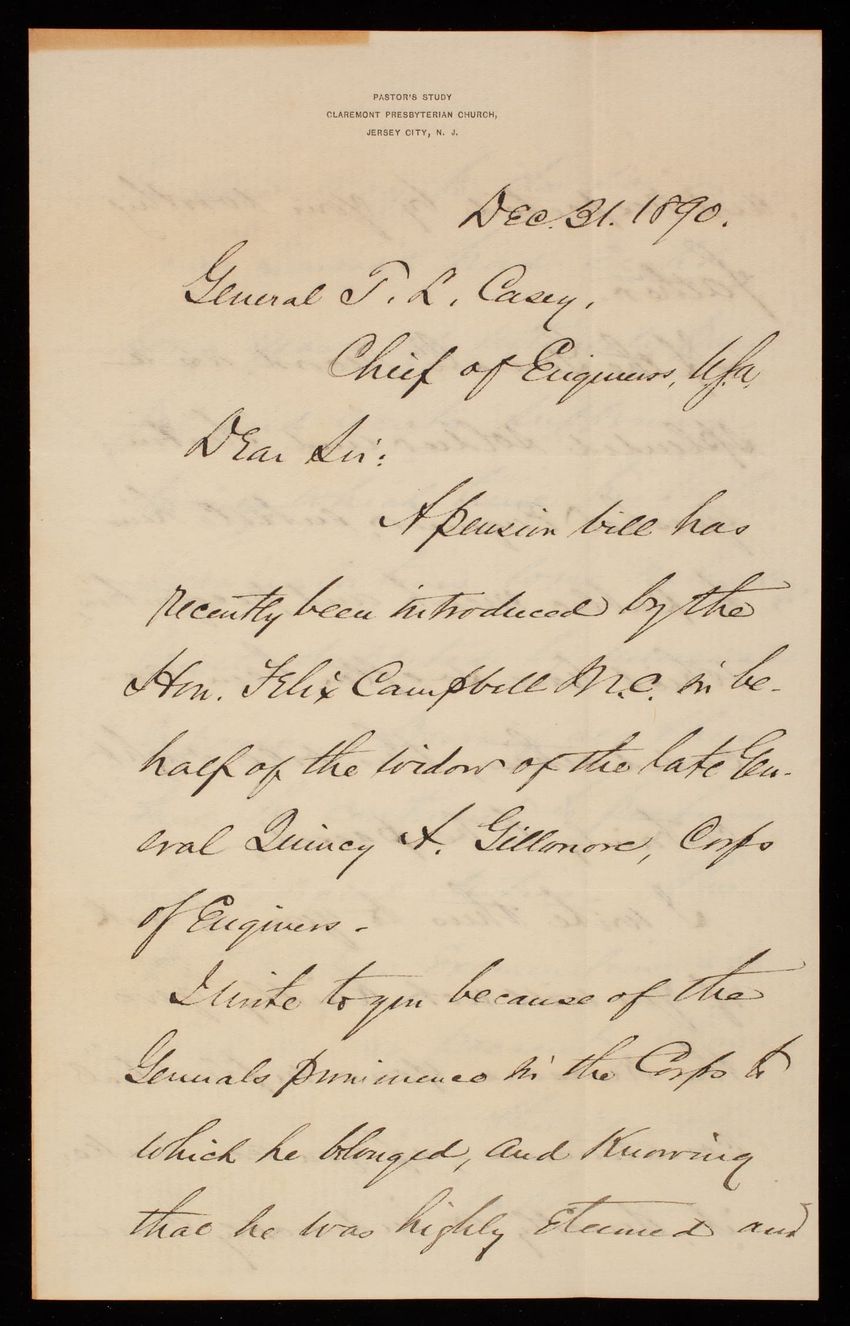 PASTOR'S STUDY
CLAREMONT PRESBYTERIAN CHURCH,
JERSEY CITY, N. J.
Dec. 31. 1890.
General T. L. Casey,
Chief of Engineers, U.S.A.
Dear Sir:
A pension bill has
recently been introduced by the
Hon. Felix Campbell M.C. in be-
half of the widow of the late Gen-
eral Quincy A. Gillmore, Corps
of Engineers.
I write to you because of the
Generals prominence in the Corps to
which he belonged, and knowing
that he was highly esteemed and